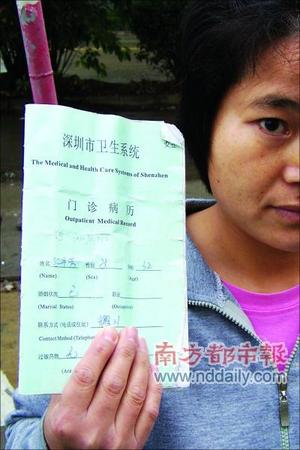 深圳市卫生系统
The Medical and Health Care Systems of Shenzhen
门诊病历
Outpatient Medical Record
姓名 性别 女 年龄 32
(Name) (Sex) (Age)
婚姻状况 已 职业
(Marital Status) (Occupation)
联系方式(电话或住址)
Contact Method (Telephone
过敏药物
南方都市報
www.nddaily.com